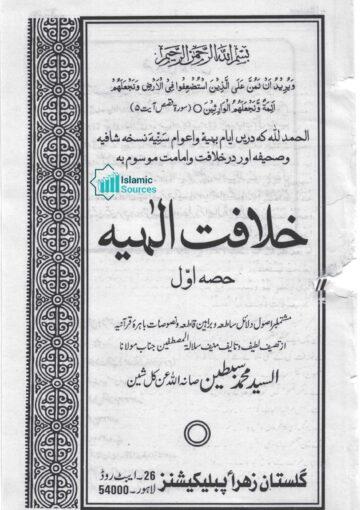 بسم الله الرحمن الرحیم
وَنُرِيدُ أَنْ نَمُنَّ عَلَى الَّذِينَ اسْتُضْعِفُوا فِي الْأَرْضِ وَنَجْعَلَهُمْ
أَئِمَّةً وَنَجْعَلَهُمُ الْوَارِثِينَ (سورۃ قصص آیت ۵)
الحمد للہ کہ دریں ایام بھیہ واعوام سَنِیّہ نسخہ شافیہ
وصحیفہ اور درخلافت وامامت موسوم بہ
Islamic
Sources
خلافت الٰہیہ
حصہ اوّل
مشتملبراصول دلائل ساطعہ وبراہین قاطعہ ونصوصات باہرۂ قرآنیہ
از تصنیف لطیف وتالیف منیف سلالۃ المصطفین جناب مولانا
السید محمد سبطین صانہ اللہ عن کل شین
گلستان زہراؑ پبلیکیشنز
26۔ایبٹ روڈ
لاہور۔54000